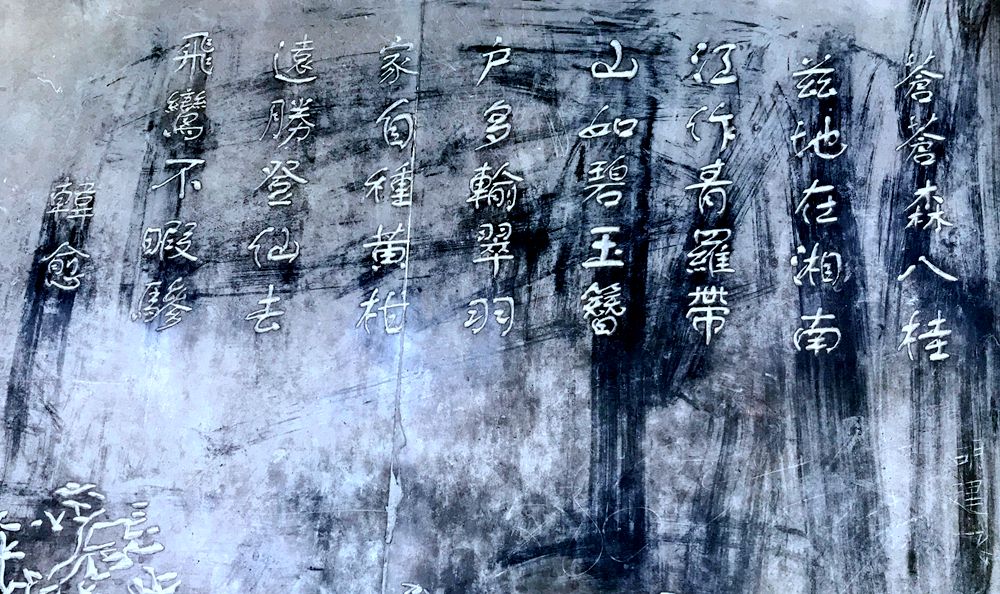 蒼蒼森八桂
茲地在湘南
江作青羅帶
山如碧玉簪
户多輸翠羽
家自種黄柑
遠勝登仙去
飛鸞不暇驂
韓愈